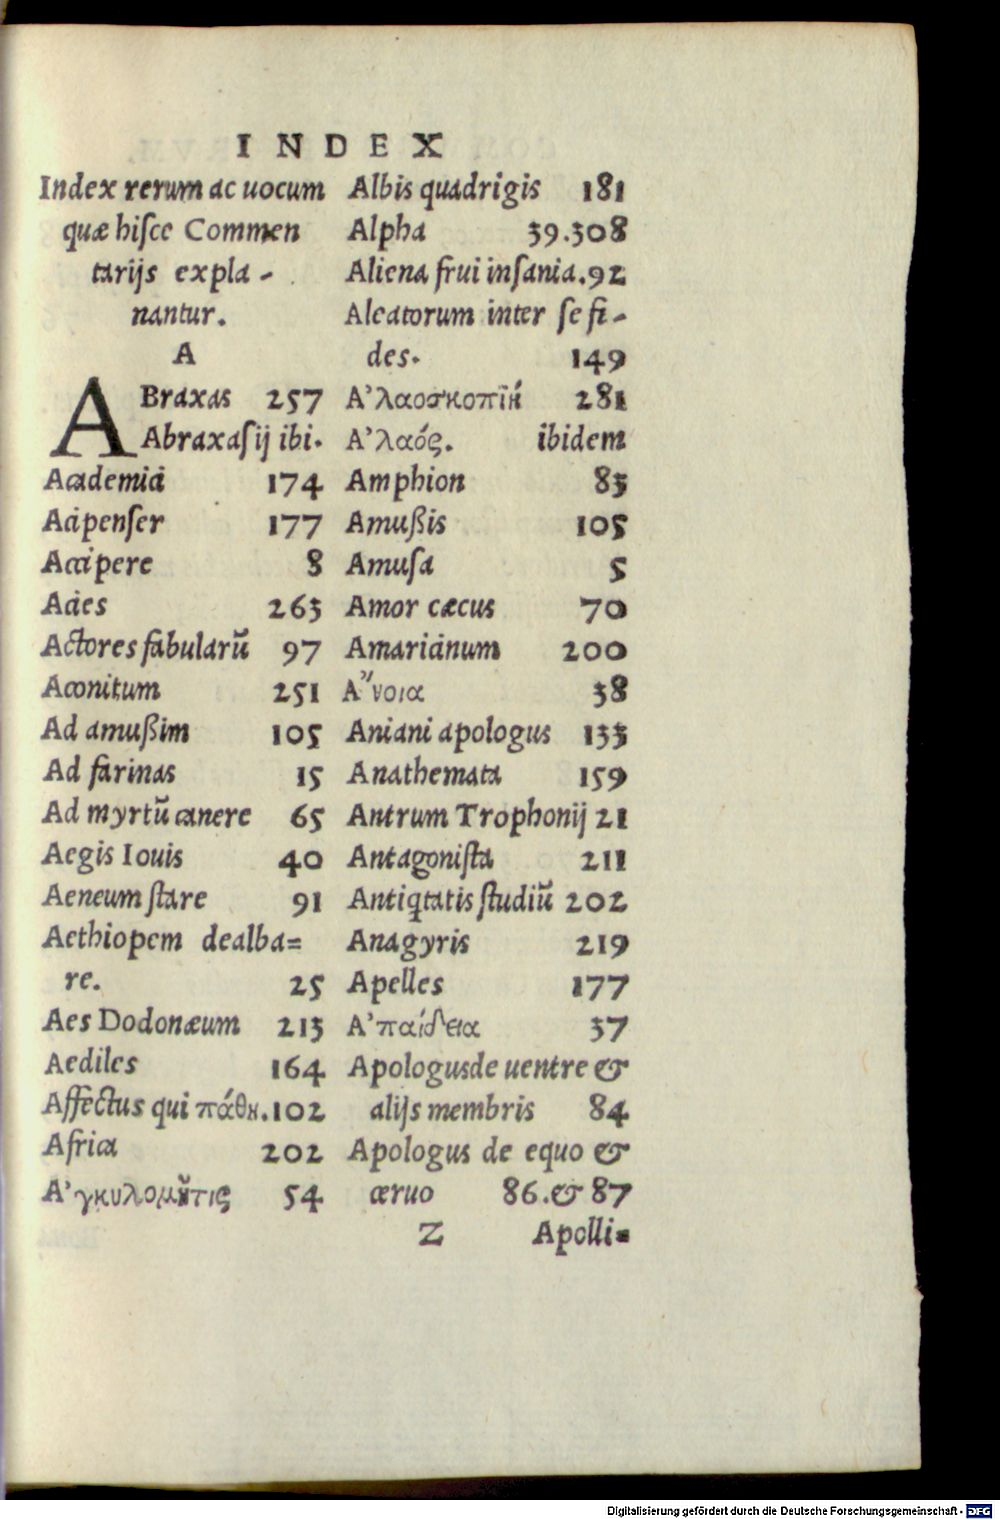 INDEX
Index rerum ac uocum
quæ hisce Commen
tarijs expla-
nantur.
A
ABraxas 257
Abraxasij ibi.
Academia 174
Acipenser 177
Accipere 8
Acies 263
Actores fabularũ 97
Aconitum 251
Ad amußim 105
Ad farinas 15
Ad myrtũ canere 65
Aegis Iouis 40
Aeneum stare 91
Aethiopem dealba=
re. 25
Aes Dodonæum 213
Aediles 164
Affectus qui πάθη.102
Africa 202
Ἀγκυλομῆτις 54
Albis quadrigis 181
Alpha 39.308
Aliena frui insania.92
Aleatorum inter se fi-
des. 149
Ἀλαοσκοπϊή 281
Ἀλαός. ibidem
Amphion 83
Amußis 105
Amusa 5
Amor cæcus 70
Amaricinum 200
Ἄνοια 38
Aniani apologus 133
Anathemata 159
Antrum Trophonij 21
Antagonista 211
Antiqtatis studiũ 202
Anagyris 219
Apelles 177
Ἀπαίδεια 37
Apologusde uentre &
alijs membris 84
Apologus de equo &
ceruo 86.& 87
Z Apolli=
Digitalisierung gefördert durch die Deutsche Forschungsgemeinschaft - DFG